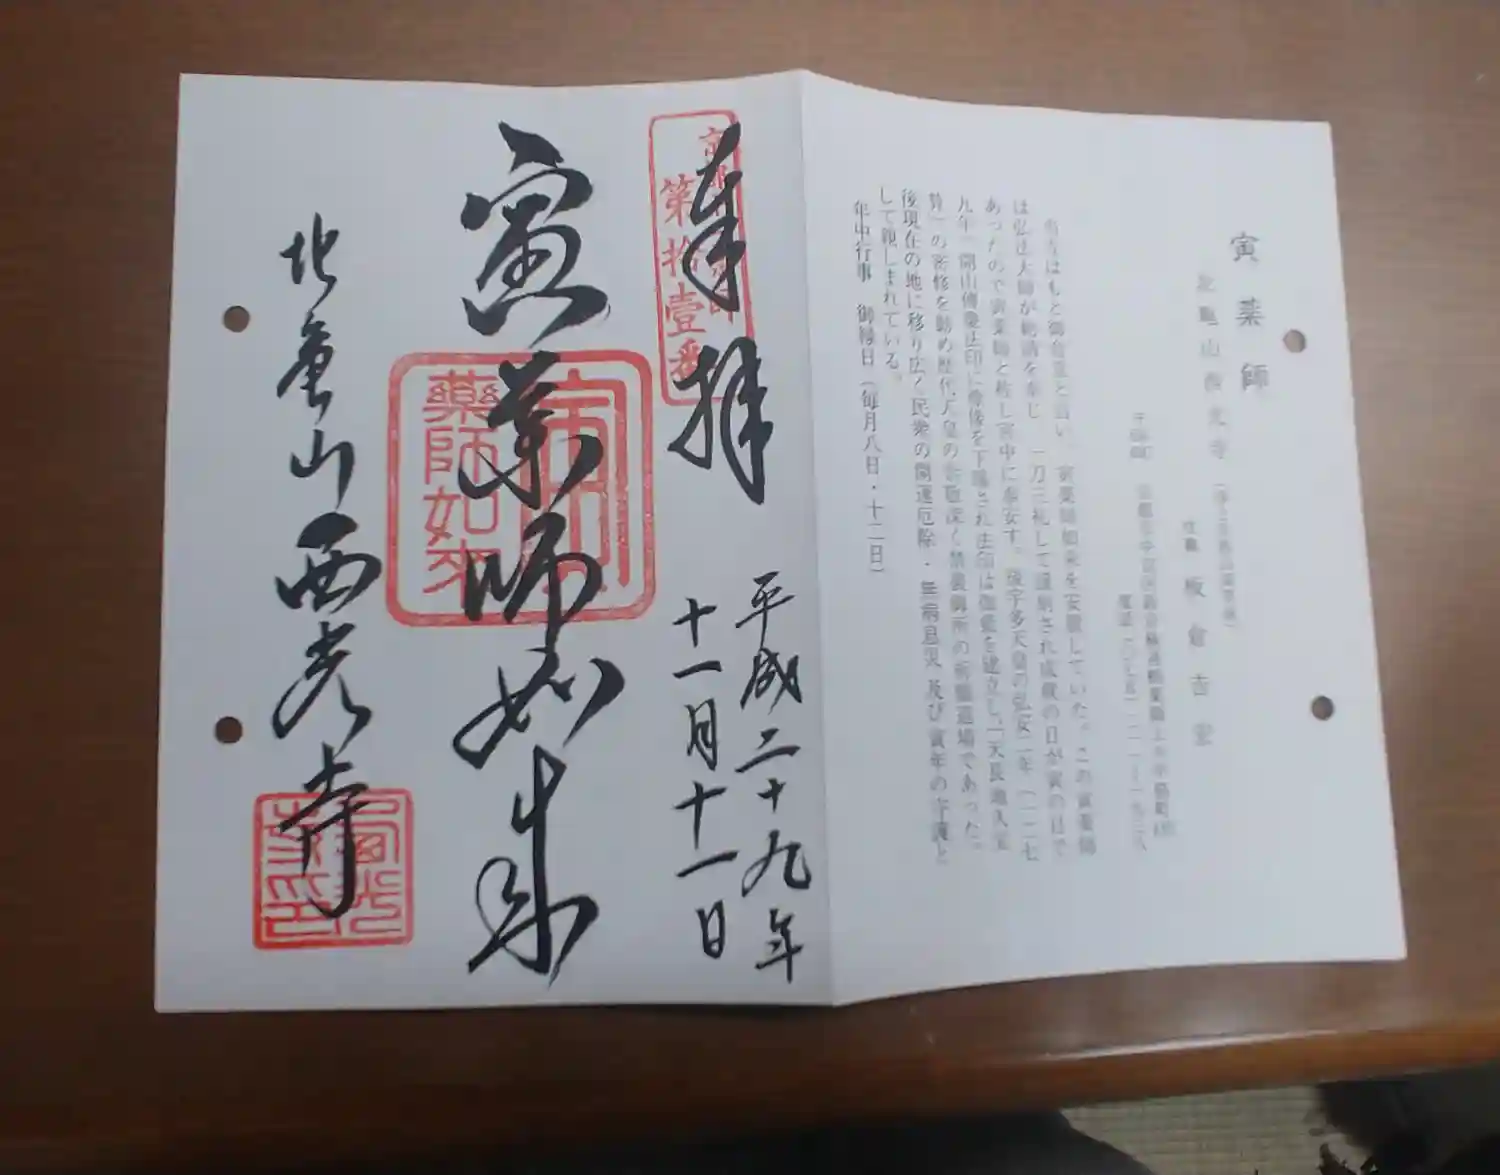 寅薬師
北亀山西光寺
住職 板倉
当寺はもと御倉堂と言い、寅薬師如来を安置していた。この寅薬師
は弘法大師が勅請を奉じ、一刀三礼して謹刻され成就の日が寅の日で
あったので寅薬師と称し宮中に奉安す。後宇多天皇の弘安二年(一二七
九年)開山傳慶法印に尊像を下賜され法印は伽藍を建立し「天長地久宝
算」の密修を勤め歴代天皇の崇敬深く禁裏御所の祈願道場であった。
後現在の地に移り広く民衆の開運厄除・無病息災及び寅年の守護と
して親しまれている。
年中行事 御縁日(毎月八日・十二日)
奉拝
平成二十九年
十一月十一日
第拾壹番
寅薬師如来
藥師如來
北亀山西光寺